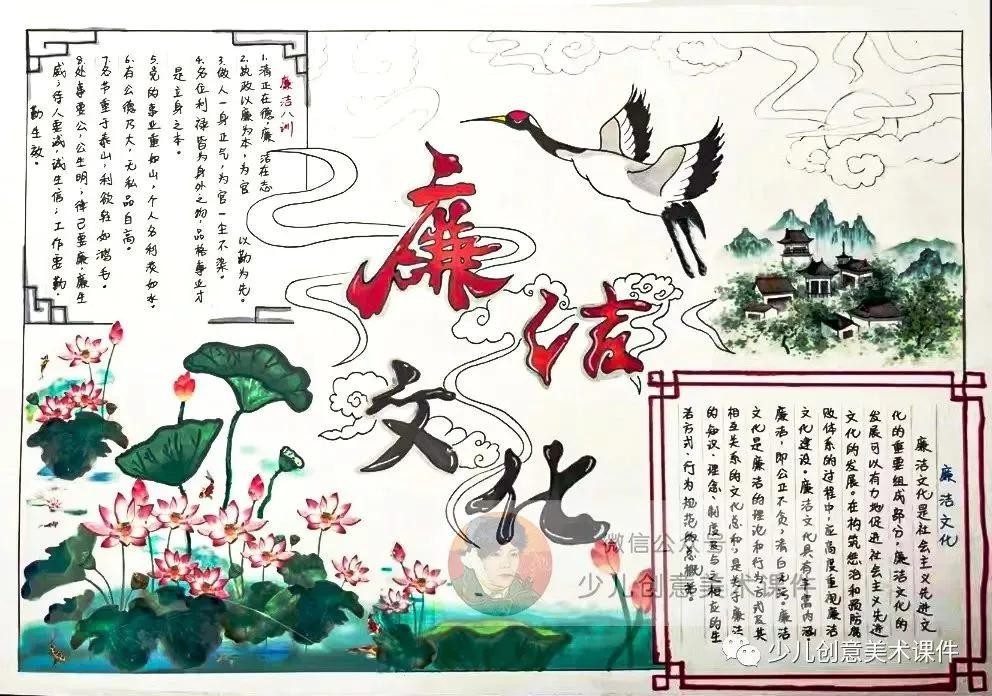 廉洁文化
廉洁八训
1.清正在德,廉洁在志
2.执政以廉为本,为官
以勤为先。
3.做人一身正气,为官一生不染。
4.名位利禄皆为身外之物,品格事业才
是立身之本。
5.党的事业重如山,个人名利淡如水。
6.有公德乃大,无私品自高。
7.名节重于泰山,利欲轻如鸿毛。
8.处事要公,公生明;律己要廉,廉生
威;待人要诚,诚生信;工作要勤,
勤生效。
廉洁文化
廉洁文化是社会主义先进文
化的重要组成部分,廉洁文化的
发展可以有力地促进社会主义先进
文化的发展。在构筑惩治和预防腐
败体系的过程中,应高度重视廉洁
文化建设。廉洁文化具有丰富内涵。
廉洁,即公正不贪,清白无污。廉洁
文化是廉洁的理论和行为方式及其
相互关系的文化总和,是关于廉洁
的知识、理念、制度及与之相应的生
活方式、行为规范的总概括。
微信公众号
少儿创意美术课件
少儿创意美术课件